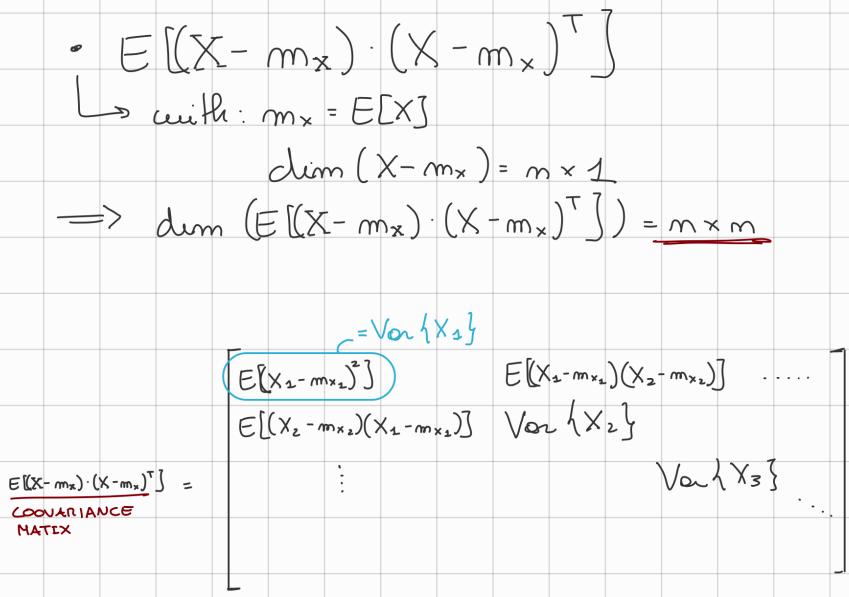 • E[(X - mₓ) · (X - mₓ)ᵀ]
↳ with: mₓ = E[X]
dim (X - mₓ) = n × 1
⟹ dim (E[(X - mₓ) · (X - mₓ)ᵀ]) = n × n
= Var{X₁}
E[(X₁ - m_x₁)²] E[(X₁ - m_x₁)(X₂ - m_x₂)] .....
E[(X₂ - m_x₂)(X₁ - m_x₁)] Var{X₂}
E[(X - mₓ) · (X - mₓ)ᵀ] = ⋮ Var{X₃} ⋱
COOVARIANCE
MATIX